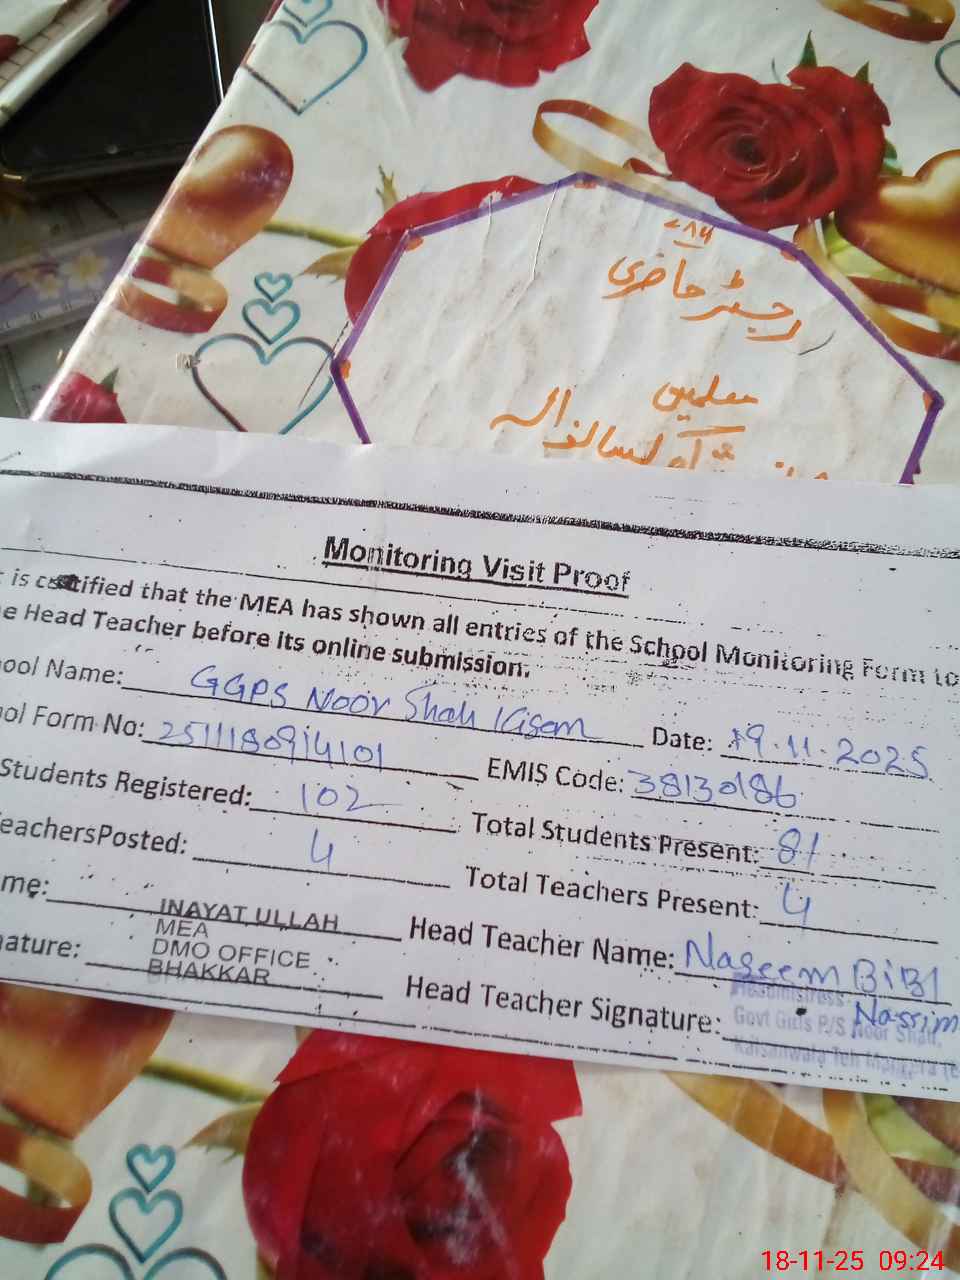 ۷۸۶
رجسٹر حاضری
معلمین
Monitoring Visit Proof
is certified that the MEA has shown all entries of the School Monitoring Form to
e Head Teacher before its online submission.
ool Name: GGPS Noor Shah Kisan Date: 19.11.2025
ol Form No: 2511180914101 EMIS Code: 38130186
Students Registered: 102 Total Students Present: 81
eachersPosted: 4 Total Teachers Present: 4
me: INAYAT ULLAH Head Teacher Name: Naseem BiBi
MEA
DMO OFFICE
BHAKKAR
nature: Head Teacher Signature: Nassim
Headmistress
Govt Girls P/S Noor Shah,
18-11-25 09:24